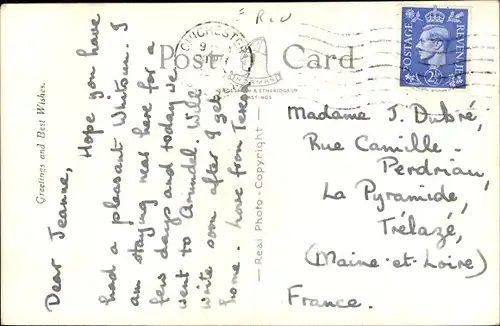 Post Card
CHICHESTER
POSTAGE REVENUE
2½D
Greetings and Best Wishes.
Dear Jeanne, Hope you have
had a pleasant Whitsun. I
am staying near here for a
few days and today we
went to Arundel. Will
write soon after I get
home. Love from
Real Photo - Copyright
Madame J. Dubré,
Rue Camille -
Perdriau,
La Pyramide,
Trélazé,
(Maine-et-Loire)
France.